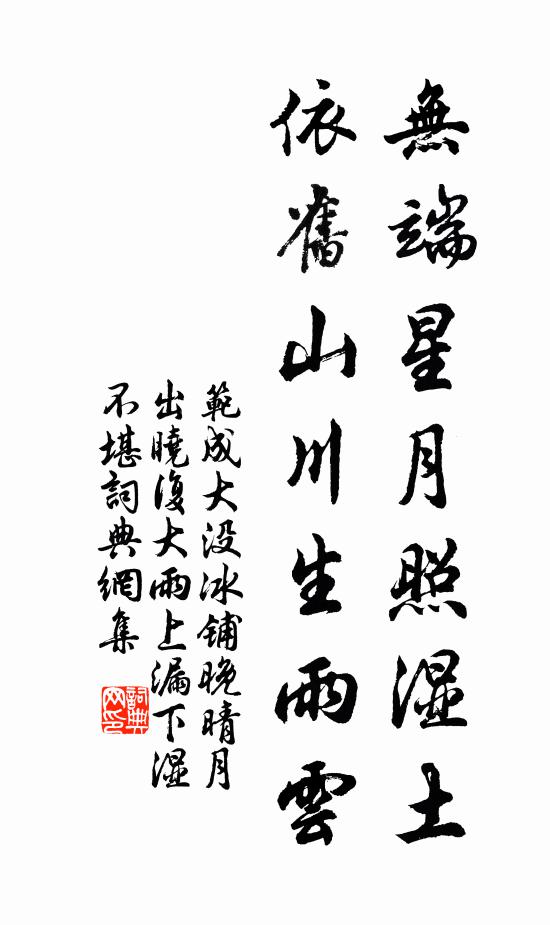 無端星月照湿土
依舊山川生雨雲
範成大没冰铺晚晴月
出曉復大雨上漏下湿
不堪詞典網集
詞典
网印